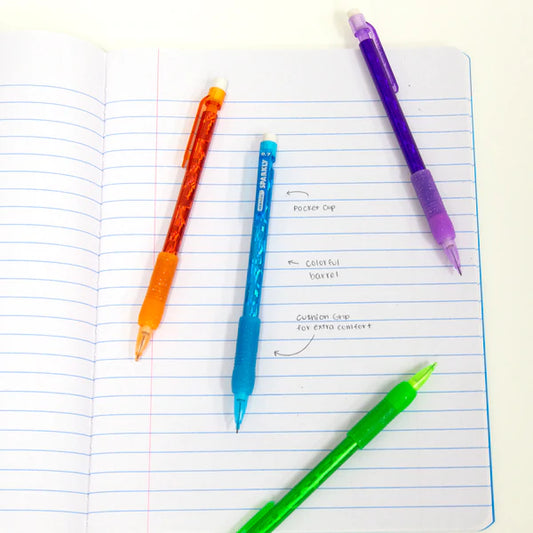 0.7
SPARKLY
Pocket Cup
Colorful
barrel
Cushion Grip
for extra comfort